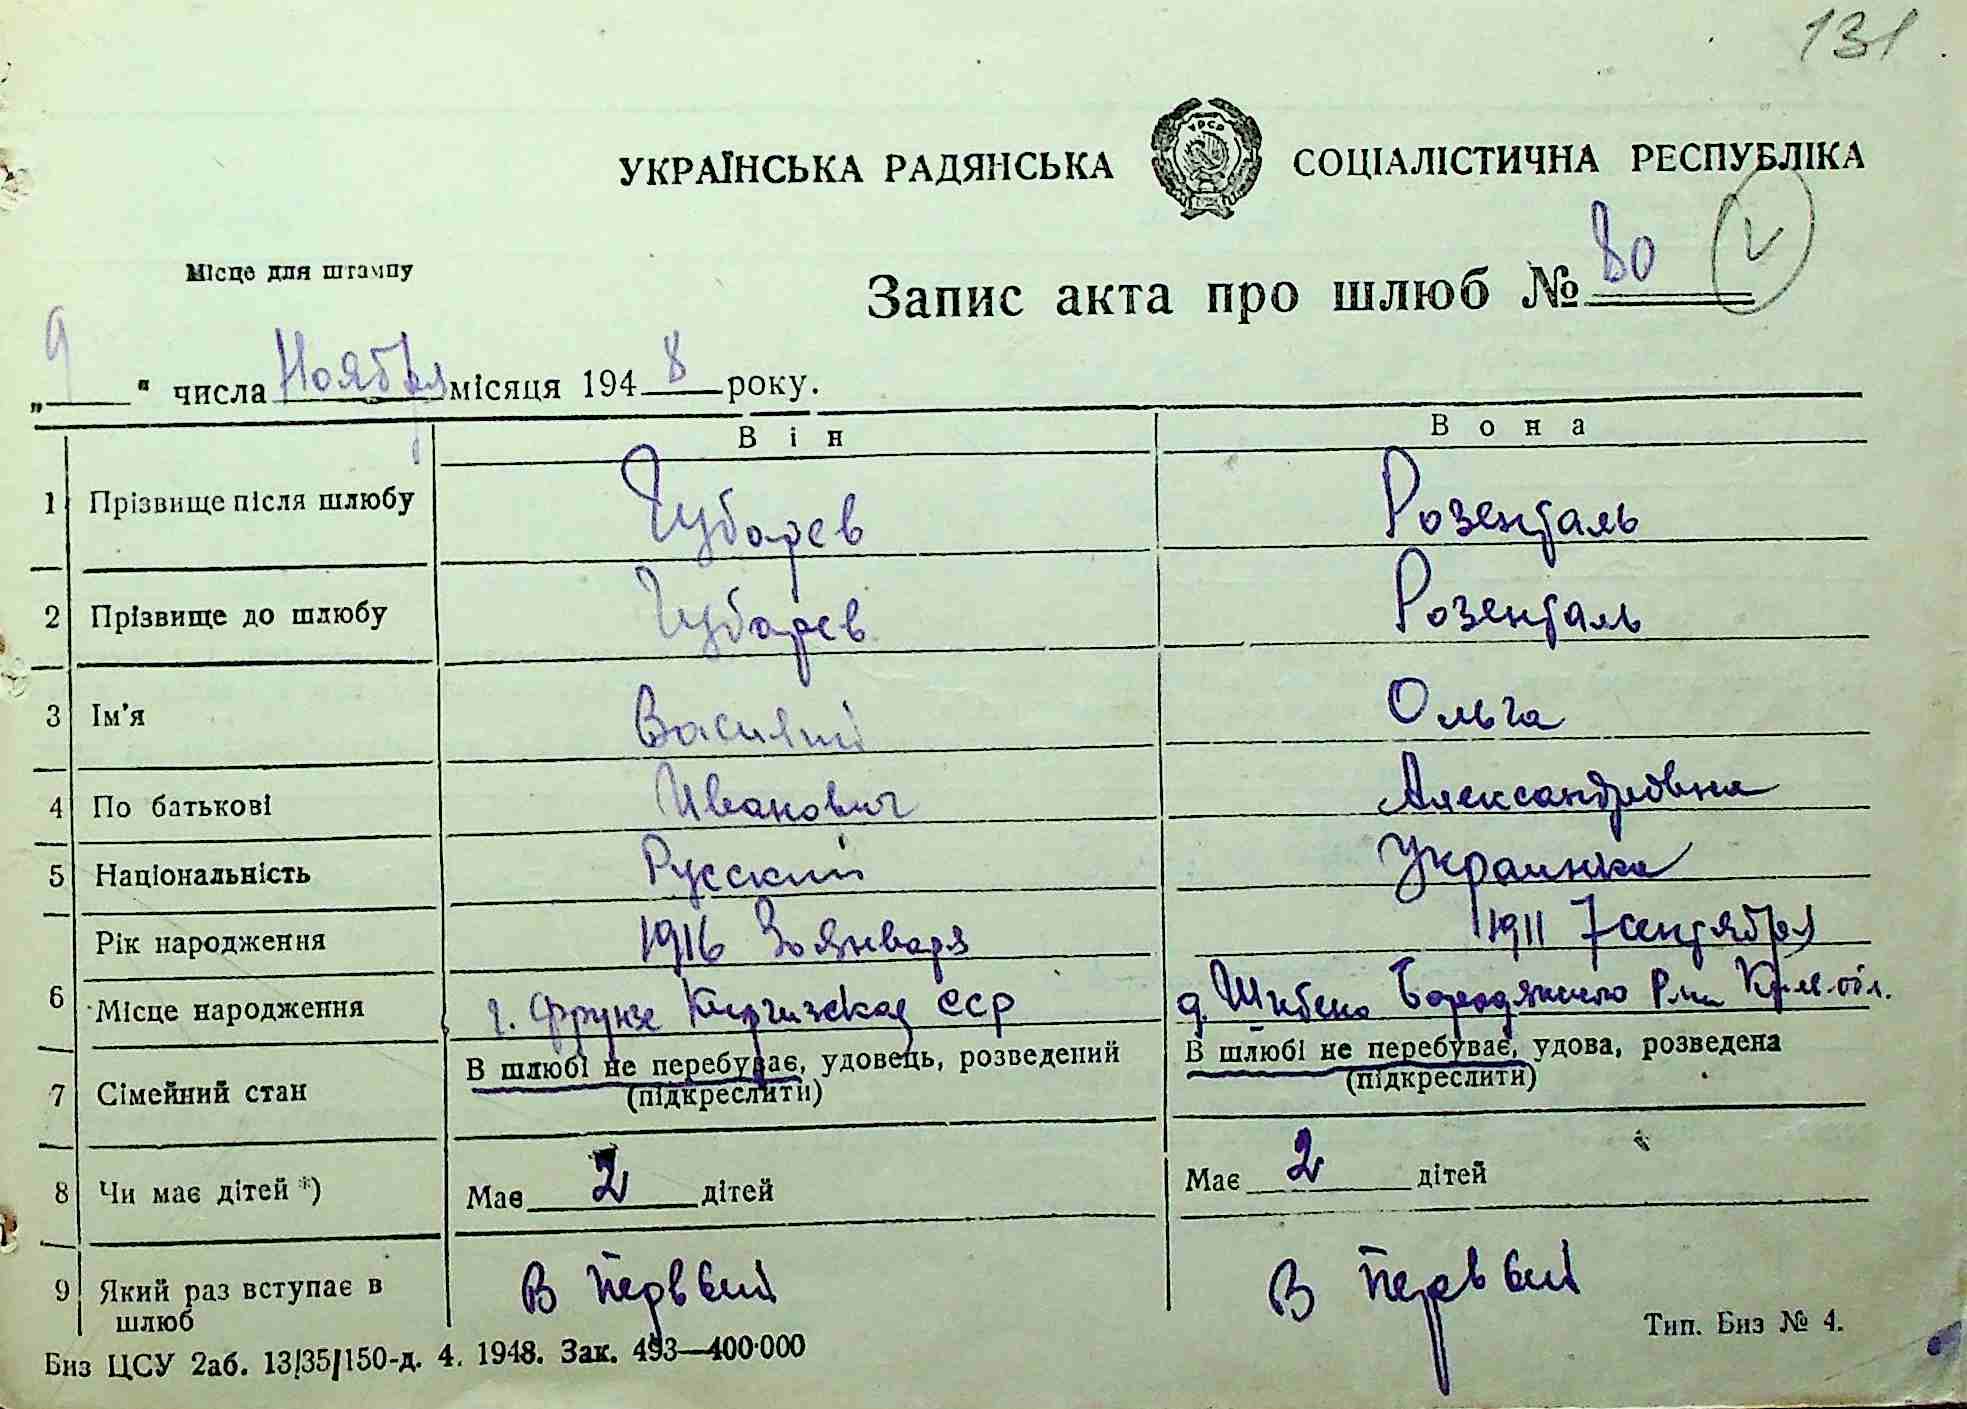 131
УКРАЇНСЬКА РАДЯНСЬКА СОЦІАЛІСТИЧНА РЕСПУБЛІКА
УРСР
Місце для штампу
Запис акта про шлюб № 80
„9" числа Ноября місяця 1948 року.
Він Вона
1 Прізвище після шлюбу Чубарев Розенталь
2 Прізвище до шлюбу Чубарев Розенталь
3 Ім'я Василий Ольга
4 По батькові Иванович Александровна
5 Національність Русский Украинка
Рік народження 1916 30 января 1911 7 сентября
6 Місце народження г. Фрунзе Киргизская ССР д. Шибено Бородянского Р-на Киев. обл.
7 Сімейний стан В шлюбі не перебуває, удовець, розведений В шлюбі не перебуває, удова, розведена
(підкреслити) (підкреслити)
8 Чи має дітей *) Має 2 дітей Має 2 дітей
9 Який раз вступає в В первый В первый
шлюб
Тип. Биз № 4.
Биз ЦСУ 2аб. 13/35/150-д. 4. 1948. Зак. 493—400·000